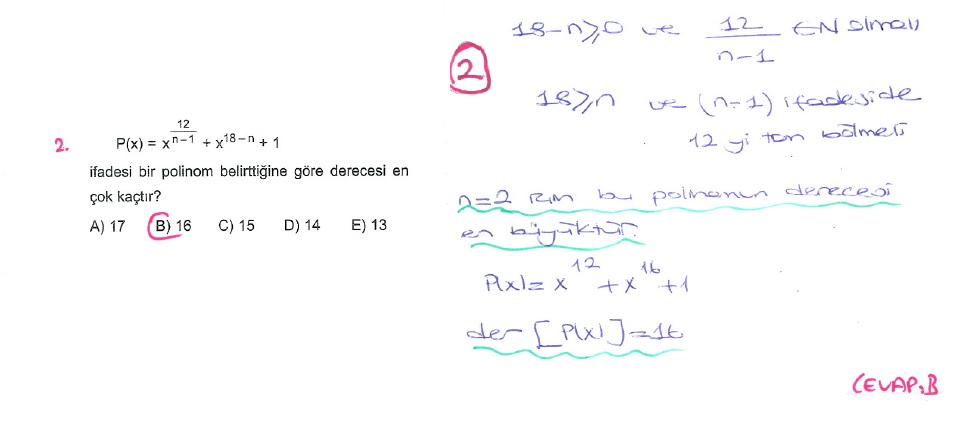 2. P(x) = x^(12/(n-1)) + x^(18-n) + 1
ifadesi bir polinom belirttiğine göre derecesi en
çok kaçtır?
A) 17 B) 16 C) 15 D) 14 E) 13
2
18-n≥0 ve 12/(n-1) ∈N olmalı
18≥n ve (n-1) ifadeside
12 yi tam bölmeli
n=2 için bu polinomun derecesi
en büyüktür.
P(x)= x^12 + x^16 + 1
der [P(x)]=16
CEVAP:B